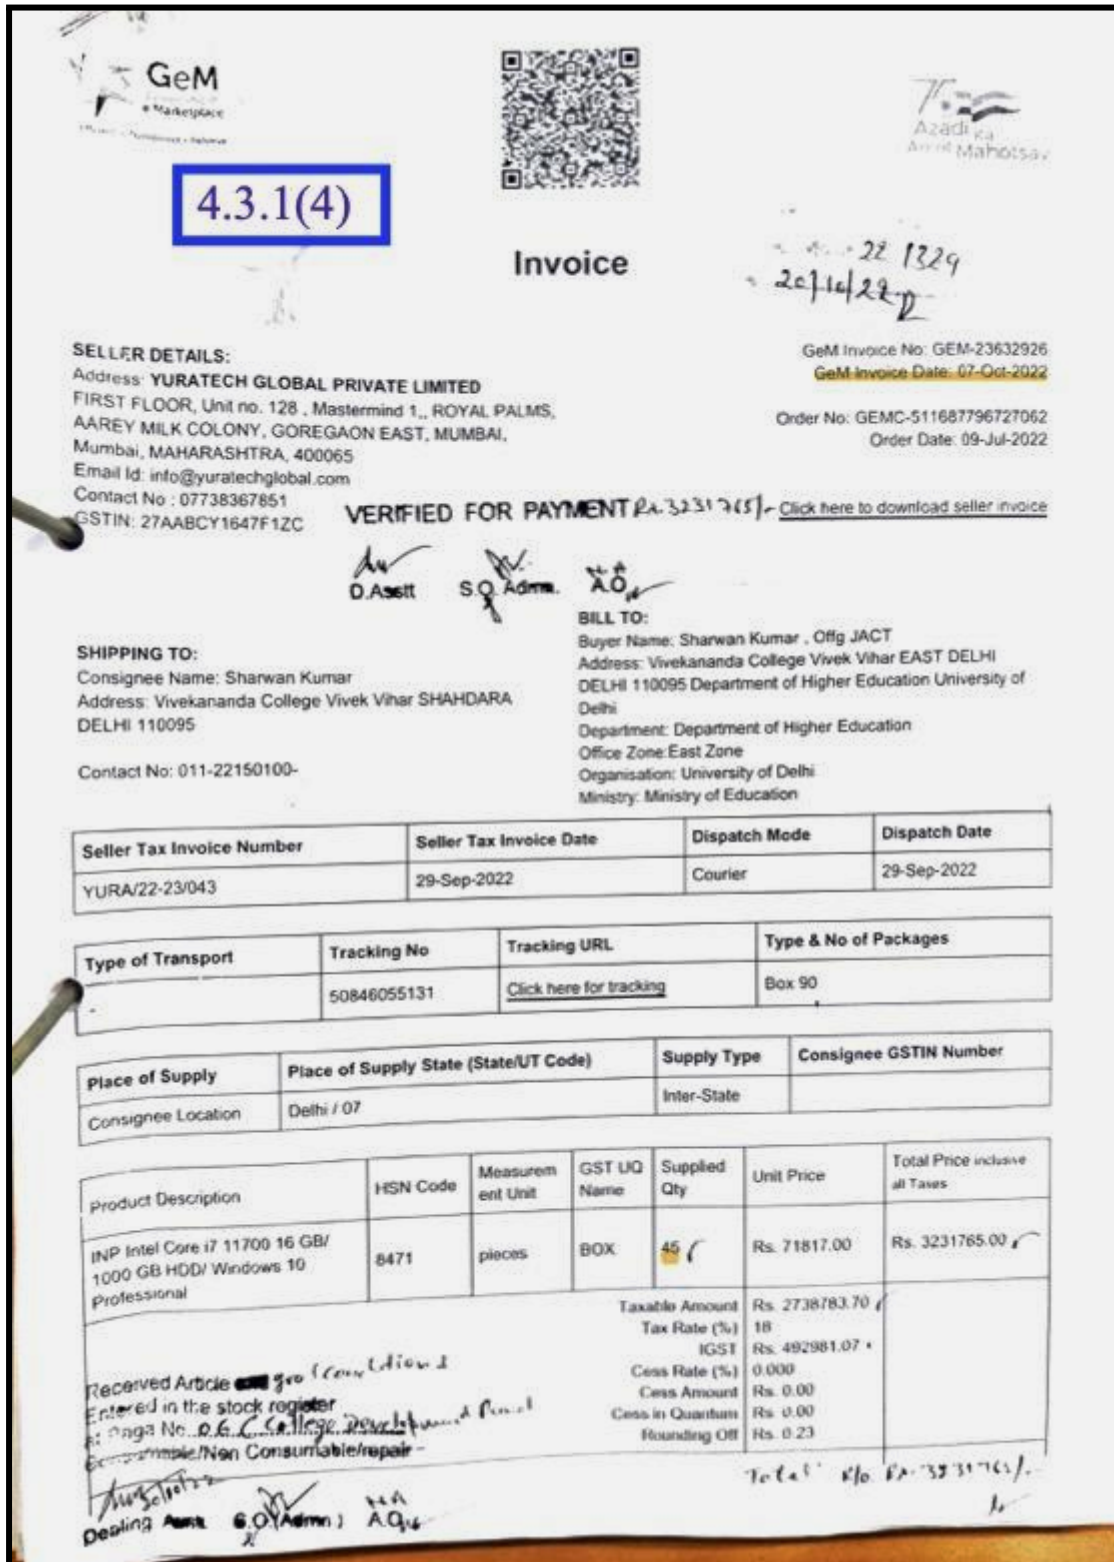 GeM
Marketplace
Azadi Ka
Amrit Mahotsav
4.3.1(4)
Invoice
22 1329
20/10/22
SELLER DETAILS:
Address: YURATECH GLOBAL PRIVATE LIMITED
FIRST FLOOR, Unit no. 128 , Mastermind 1,, ROYAL PALMS,
AAREY MILK COLONY, GOREGAON EAST, MUMBAI,
Mumbai, MAHARASHTRA, 400065
Email Id: info@yuratechglobal.com
Contact No : 07738367851
GSTIN: 27AABCY1647F1ZC
GeM Invoice No: GEM-23632926
GeM Invoice Date: 07-Oct-2022
Order No: GEMC-511687796727062
Order Date: 09-Jul-2022
VERIFIED FOR PAYMENT Rs. 3231765/- Click here to download seller invoice
D.Asstt S.O. Admn. A.O.
SHIPPING TO:
Consignee Name: Sharwan Kumar
Address: Vivekananda College Vivek Vihar SHAHDARA
DELHI 110095
Contact No: 011-22150100-
BILL TO:
Buyer Name: Sharwan Kumar , Offg JACT
Address: Vivekananda College Vivek Vihar EAST DELHI
DELHI 110095 Department of Higher Education University of
Delhi
Department: Department of Higher Education
Office Zone:East Zone
Organisation: University of Delhi
Ministry: Ministry of Education
Seller Tax Invoice Number Seller Tax Invoice Date Dispatch Mode Dispatch Date
YURA/22-23/043 29-Sep-2022 Courier 29-Sep-2022
Type of Transport Tracking No Tracking URL Type & No of Packages
- 50846055131 Click here for tracking Box 90
Place of Supply Place of Supply State (State/UT Code) Supply Type Consignee GSTIN Number
Consignee Location Delhi / 07 Inter-State
Product Description HSN Code Measurem ent Unit GST UQ Name Supplied Qty Unit Price Total Price inclusive all Taxes
INP Intel Core i7 11700 16 GB/ 1000 GB HDD/ Windows 10 Professional 8471 pieces BOX 45 Rs. 71817.00 Rs. 3231765.00
Taxable Amount Rs. 2738783.70
Tax Rate (%) 18
IGST Rs. 492981.07
Cess Rate (%) 0.000
Cess Amount Rs. 0.00
Cess in Quantum Rs. 0.00
Rounding Off Rs. 0.23
Received Article
Entered in the stock register
Page No. 06 C College Development
/Non Consumable/repair
Total Rs.
Dealing Asstt S.O (Admn) A.O.